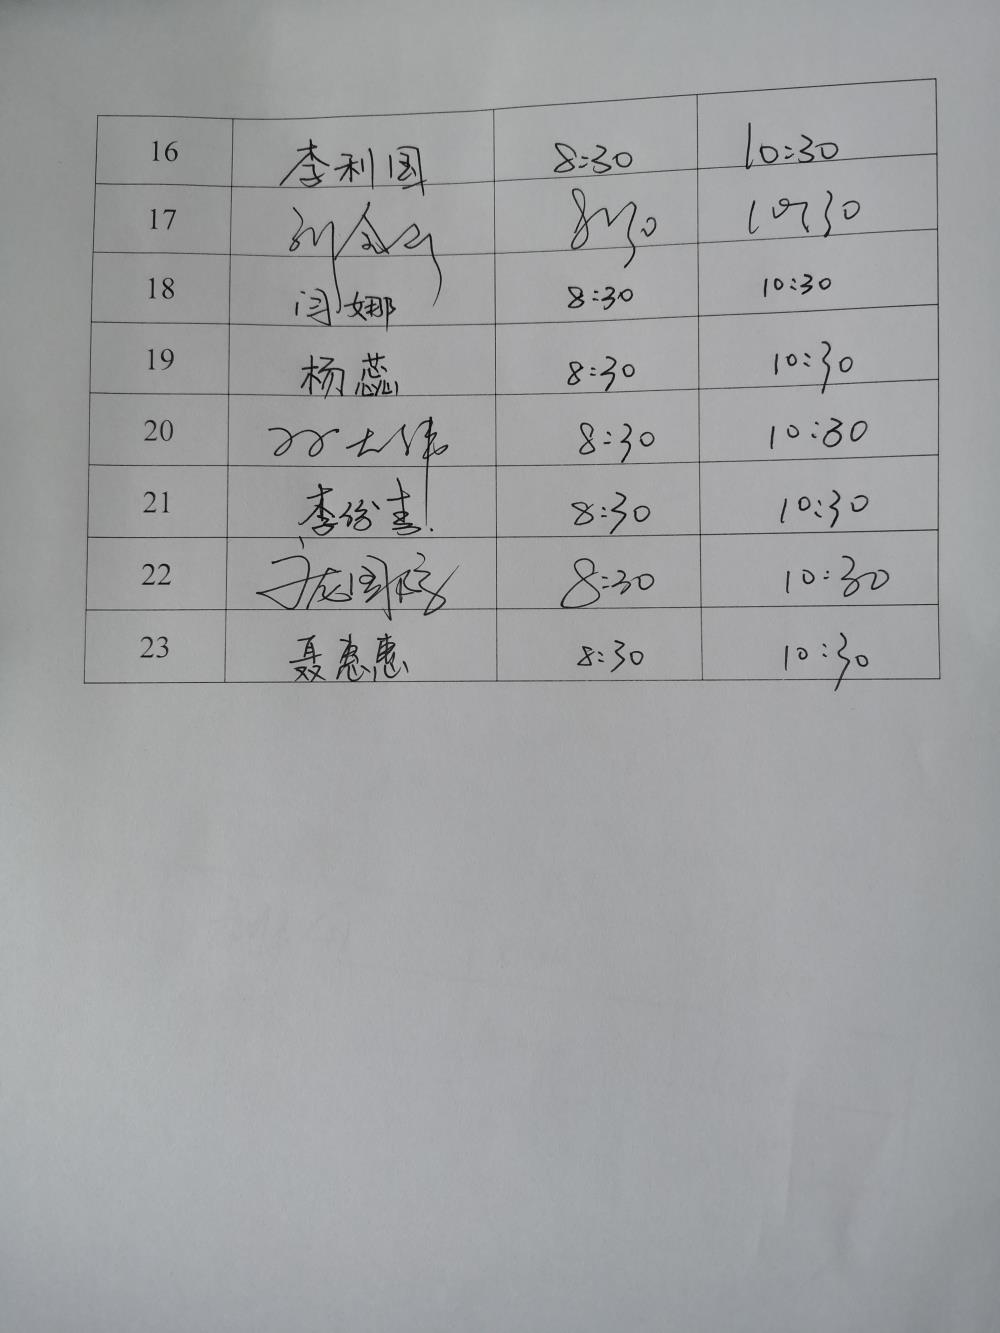 16 李利国 8:30 10:30
17 8:30 10:30
18 闫娜 8:30 10:30
19 杨蕊 8:30 10:30
20 8:30 10:30
21 李俗青 8:30 10:30
22 8:30 10:30
23 聂惠惠 8:30 10:30